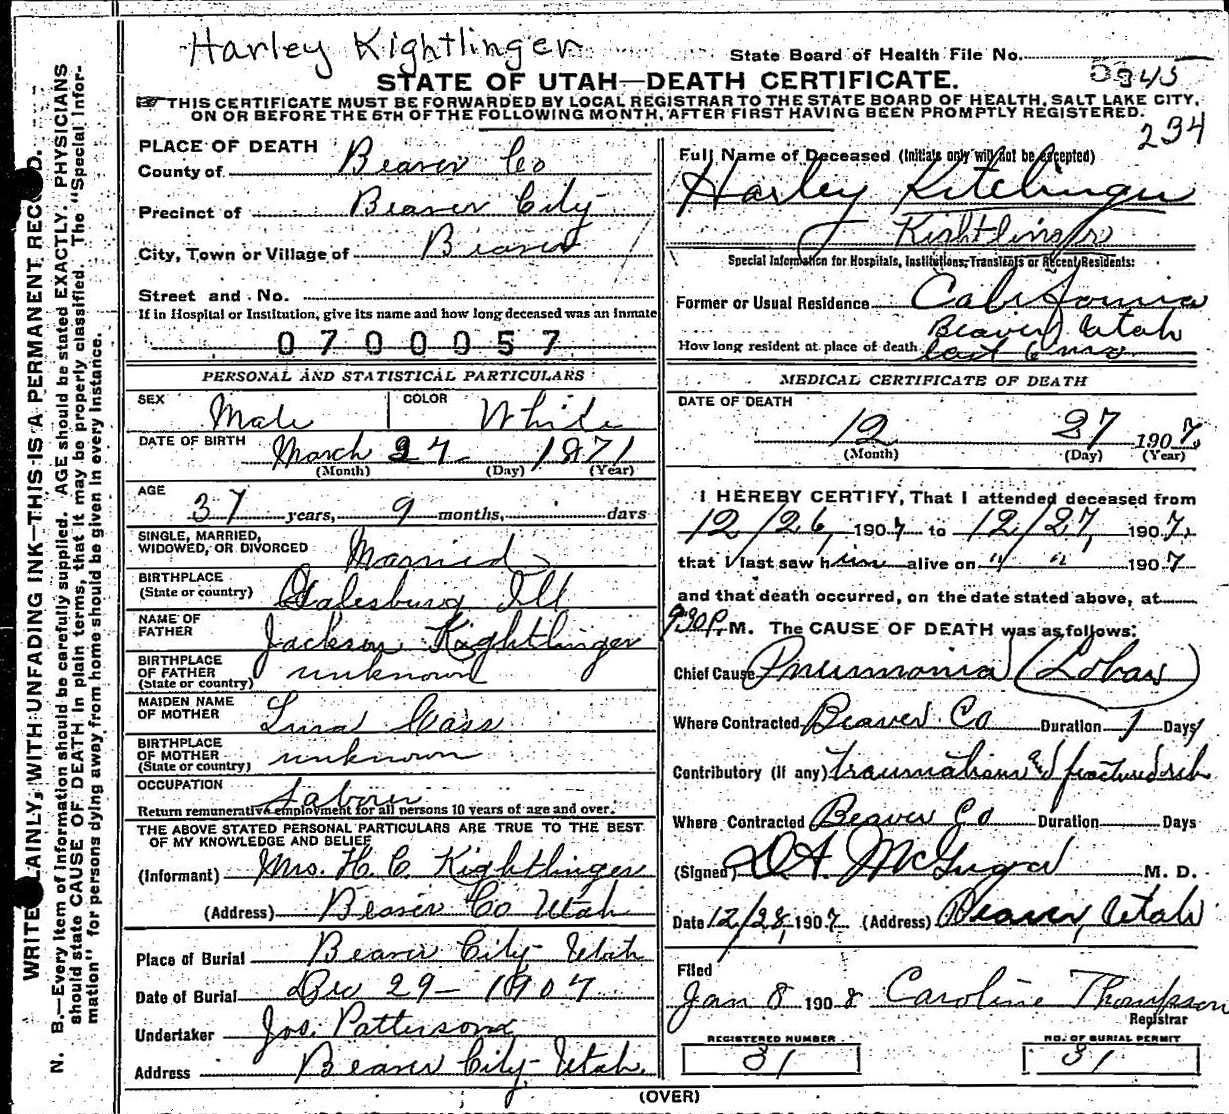 Harley Kightlinger
State Board of Health File No.
STATE OF UTAH—DEATH CERTIFICATE.
THIS CERTIFICATE MUST BE FORWARDED BY LOCAL REGISTRAR TO THE STATE BOARD OF HEALTH, SALT LAKE CITY,
ON OR BEFORE THE 5TH OF THE FOLLOWING MONTH, AFTER FIRST HAVING BEEN PROMPTLY REGISTERED.
234
WRITE PLAINLY, WITH UNFADING INK—THIS IS A PERMANENT RECORD.
N. B.—Every item of information should be carefully supplied. AGE should be stated EXACTLY. PHYSICIANS
should state CAUSE OF DEATH in plain terms, that it may be properly classified. The "Special Infor-
mation" for persons dying away from home should be given in every instance.
PLACE OF DEATH
County of Beaver Co
Precinct of Beaver City
City, Town or Village of Beaver
Street and No.
If in Hospital or Institution, give its name and how long deceased was an inmate
0700057
PERSONAL AND STATISTICAL PARTICULARS
SEX Male COLOR White
DATE OF BIRTH March 27 1871
(Month) (Day) (Year)
AGE 37 years, 9 months, days
SINGLE, MARRIED,
WIDOWED, OR DIVORCED Married
BIRTHPLACE
(State or country) Galesburg Ill
NAME OF
FATHER Jackson Kightlinger
BIRTHPLACE
OF FATHER
(State or country) unknown
MAIDEN NAME
OF MOTHER Cass
BIRTHPLACE
OF MOTHER
(State or country) unknown
OCCUPATION Laborer
Return remunerative employment for all persons 10 years of age and over.
THE ABOVE STATED PERSONAL PARTICULARS ARE TRUE TO THE BEST
OF MY KNOWLEDGE AND BELIEF
(Informant) Mrs. H. C. Kightlinger
(Address) Beaver Co Utah
Place of Burial Beaver City Utah
Date of Burial Dec 29 - 1907
Undertaker Jos. Patterson
Address Beaver City Utah
Full Name of Deceased (Initials only will not be accepted)
Harley Kitelinger
Kightlinger
Special Information for Hospitals, Institutions, Transients or Recent Residents:
Former or Usual Residence California
Beaver Utah
How long resident at place of death last 6 mos
MEDICAL CERTIFICATE OF DEATH
DATE OF DEATH
12 27 1907
(Month) (Day) (Year)
I HEREBY CERTIFY, That I attended deceased from
12/26, 1907 to 12/27, 1907,
that I last saw him alive on " " 1907
and that death occurred, on the date stated above, at
930 P. M. The CAUSE OF DEATH was as follows:
Chief Cause Pneumonia (Lobar)
Where Contracted Beaver Co Duration 1 Days
Contributory (if any) traumatism and fractured rib
Where Contracted Beaver Co Duration Days
(Signed) M. D.
Date 12/28, 1907 (Address) Beaver, Utah
Filed
Jan 8 1908 Caroline Thompson
Registrar
REGISTERED NUMBER
31
NO. OF BURIAL PERMIT
31
(OVER)